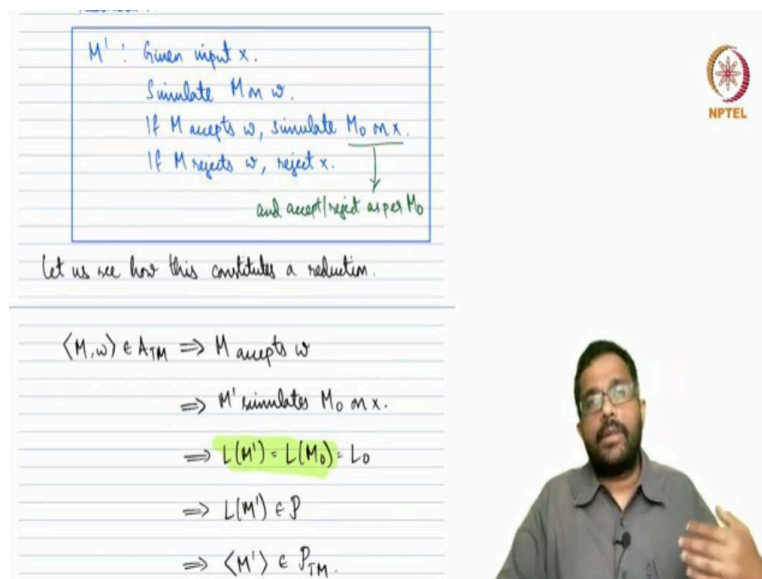 M' : Given input x.
Simulate M on w.
If M accepts w, simulate M₀ on x.
If M rejects w, reject x.
and accept/reject as per M₀
Let us see how this constitutes a reduction.
⟨M,w⟩ ∈ A_TM ⇒ M accepts w
⇒ M' simulates M₀ on x.
⇒ L(M') = L(M₀) = L₀
⇒ L(M') ∈ P
⇒ ⟨M'⟩ ∈ P_TM.
NPTEL